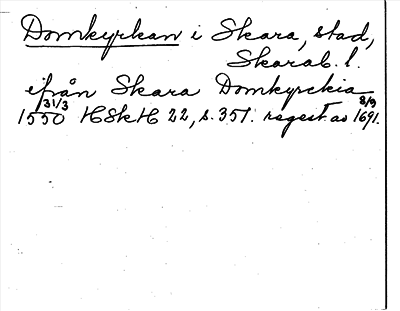 Domkyrkan i Skara, stad,
Skarab. l.
ifrån Skara Domkyrckia
1550 31/3 HSkH 22, s. 357. regest av 8/9 1691.